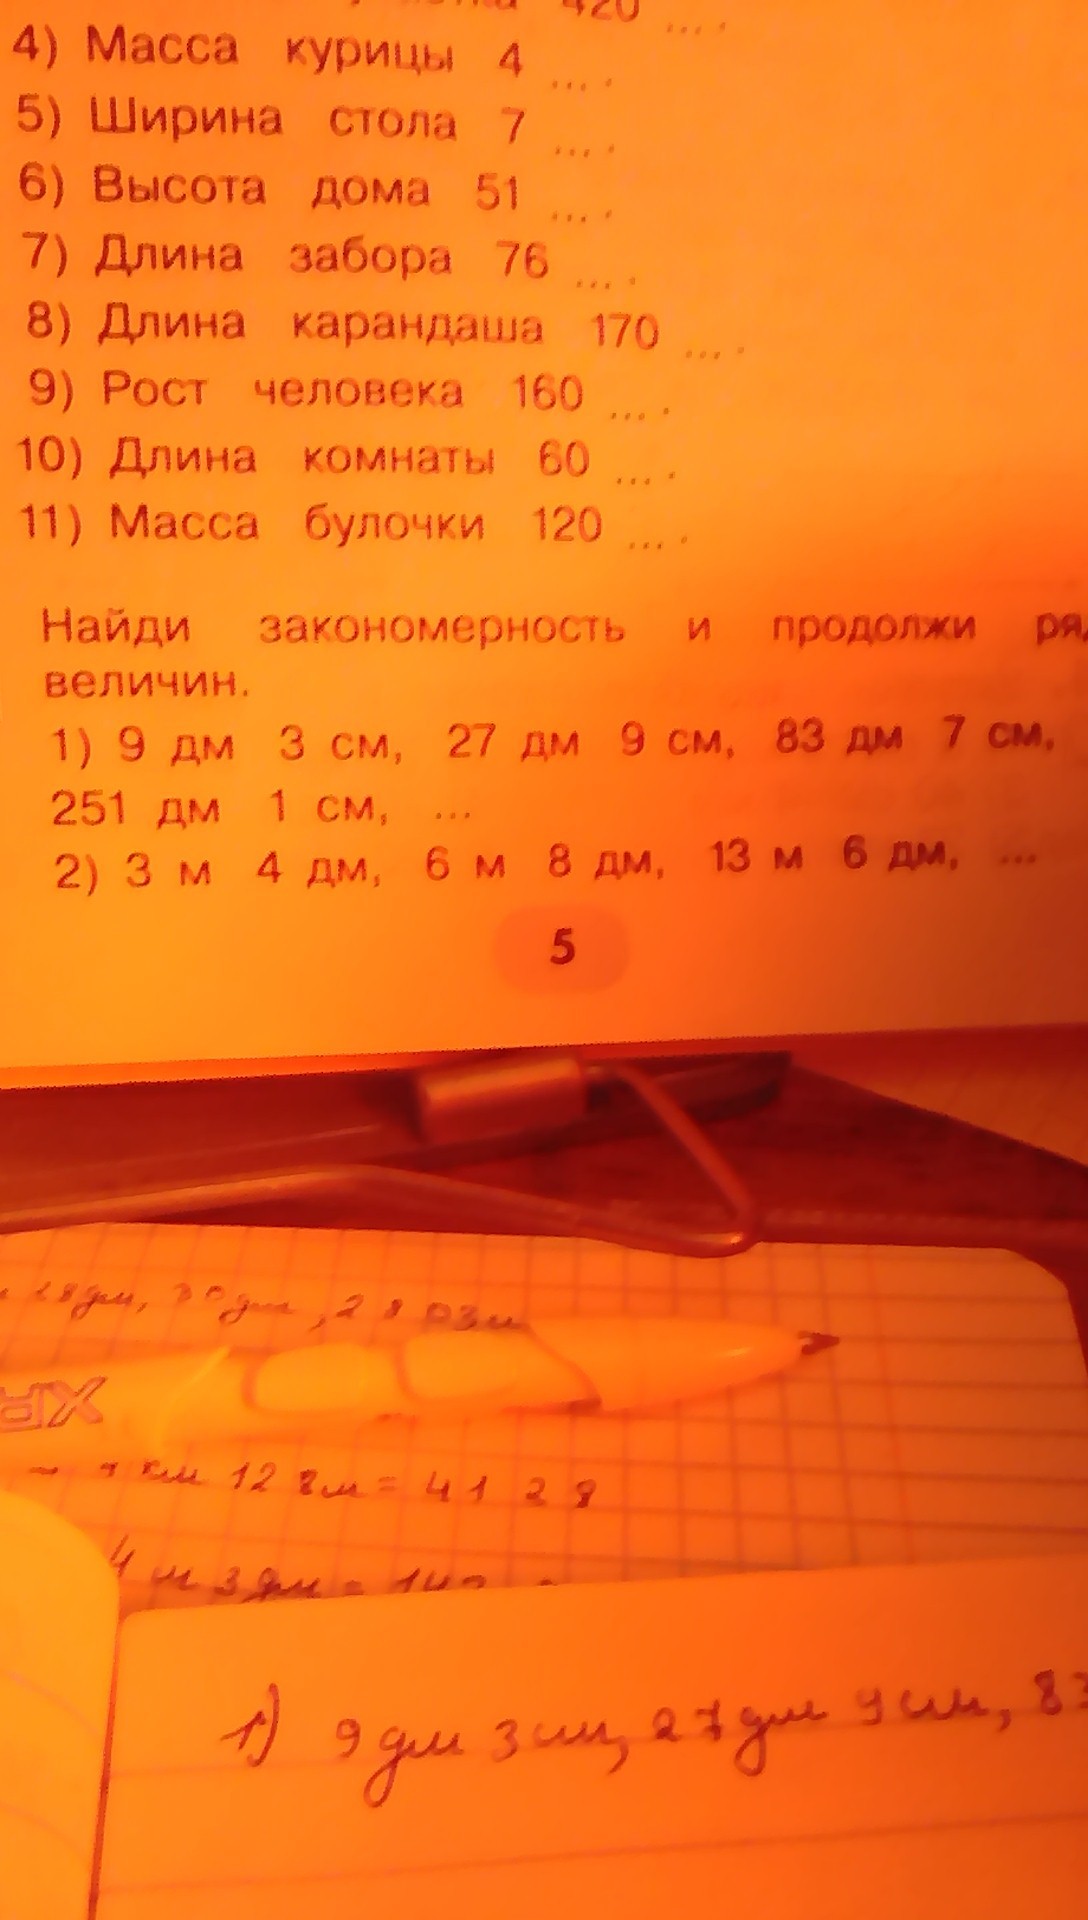 420 ... .
4) Масса курицы 4 ... .
5) Ширина стола 7 ... .
6) Высота дома 51 ... .
7) Длина забора 76 ... .
8) Длина карандаша 170 ... .
9) Рост человека 160 ... .
10) Длина комнаты 60 ... .
11) Масса булочки 120 ... .
Найди закономерность и продолжи ря
величин.
1) 9 дм 3 см, 27 дм 9 см, 83 дм 7 см,
251 дм 1 см, ...
2) 3 м 4 дм, 6 м 8 дм, 13 м 6 дм, ...
5
км 12 = 41 2 8
4 м 3 дм =
1) 9 дм 3 см, 27 дм 9 см, 83